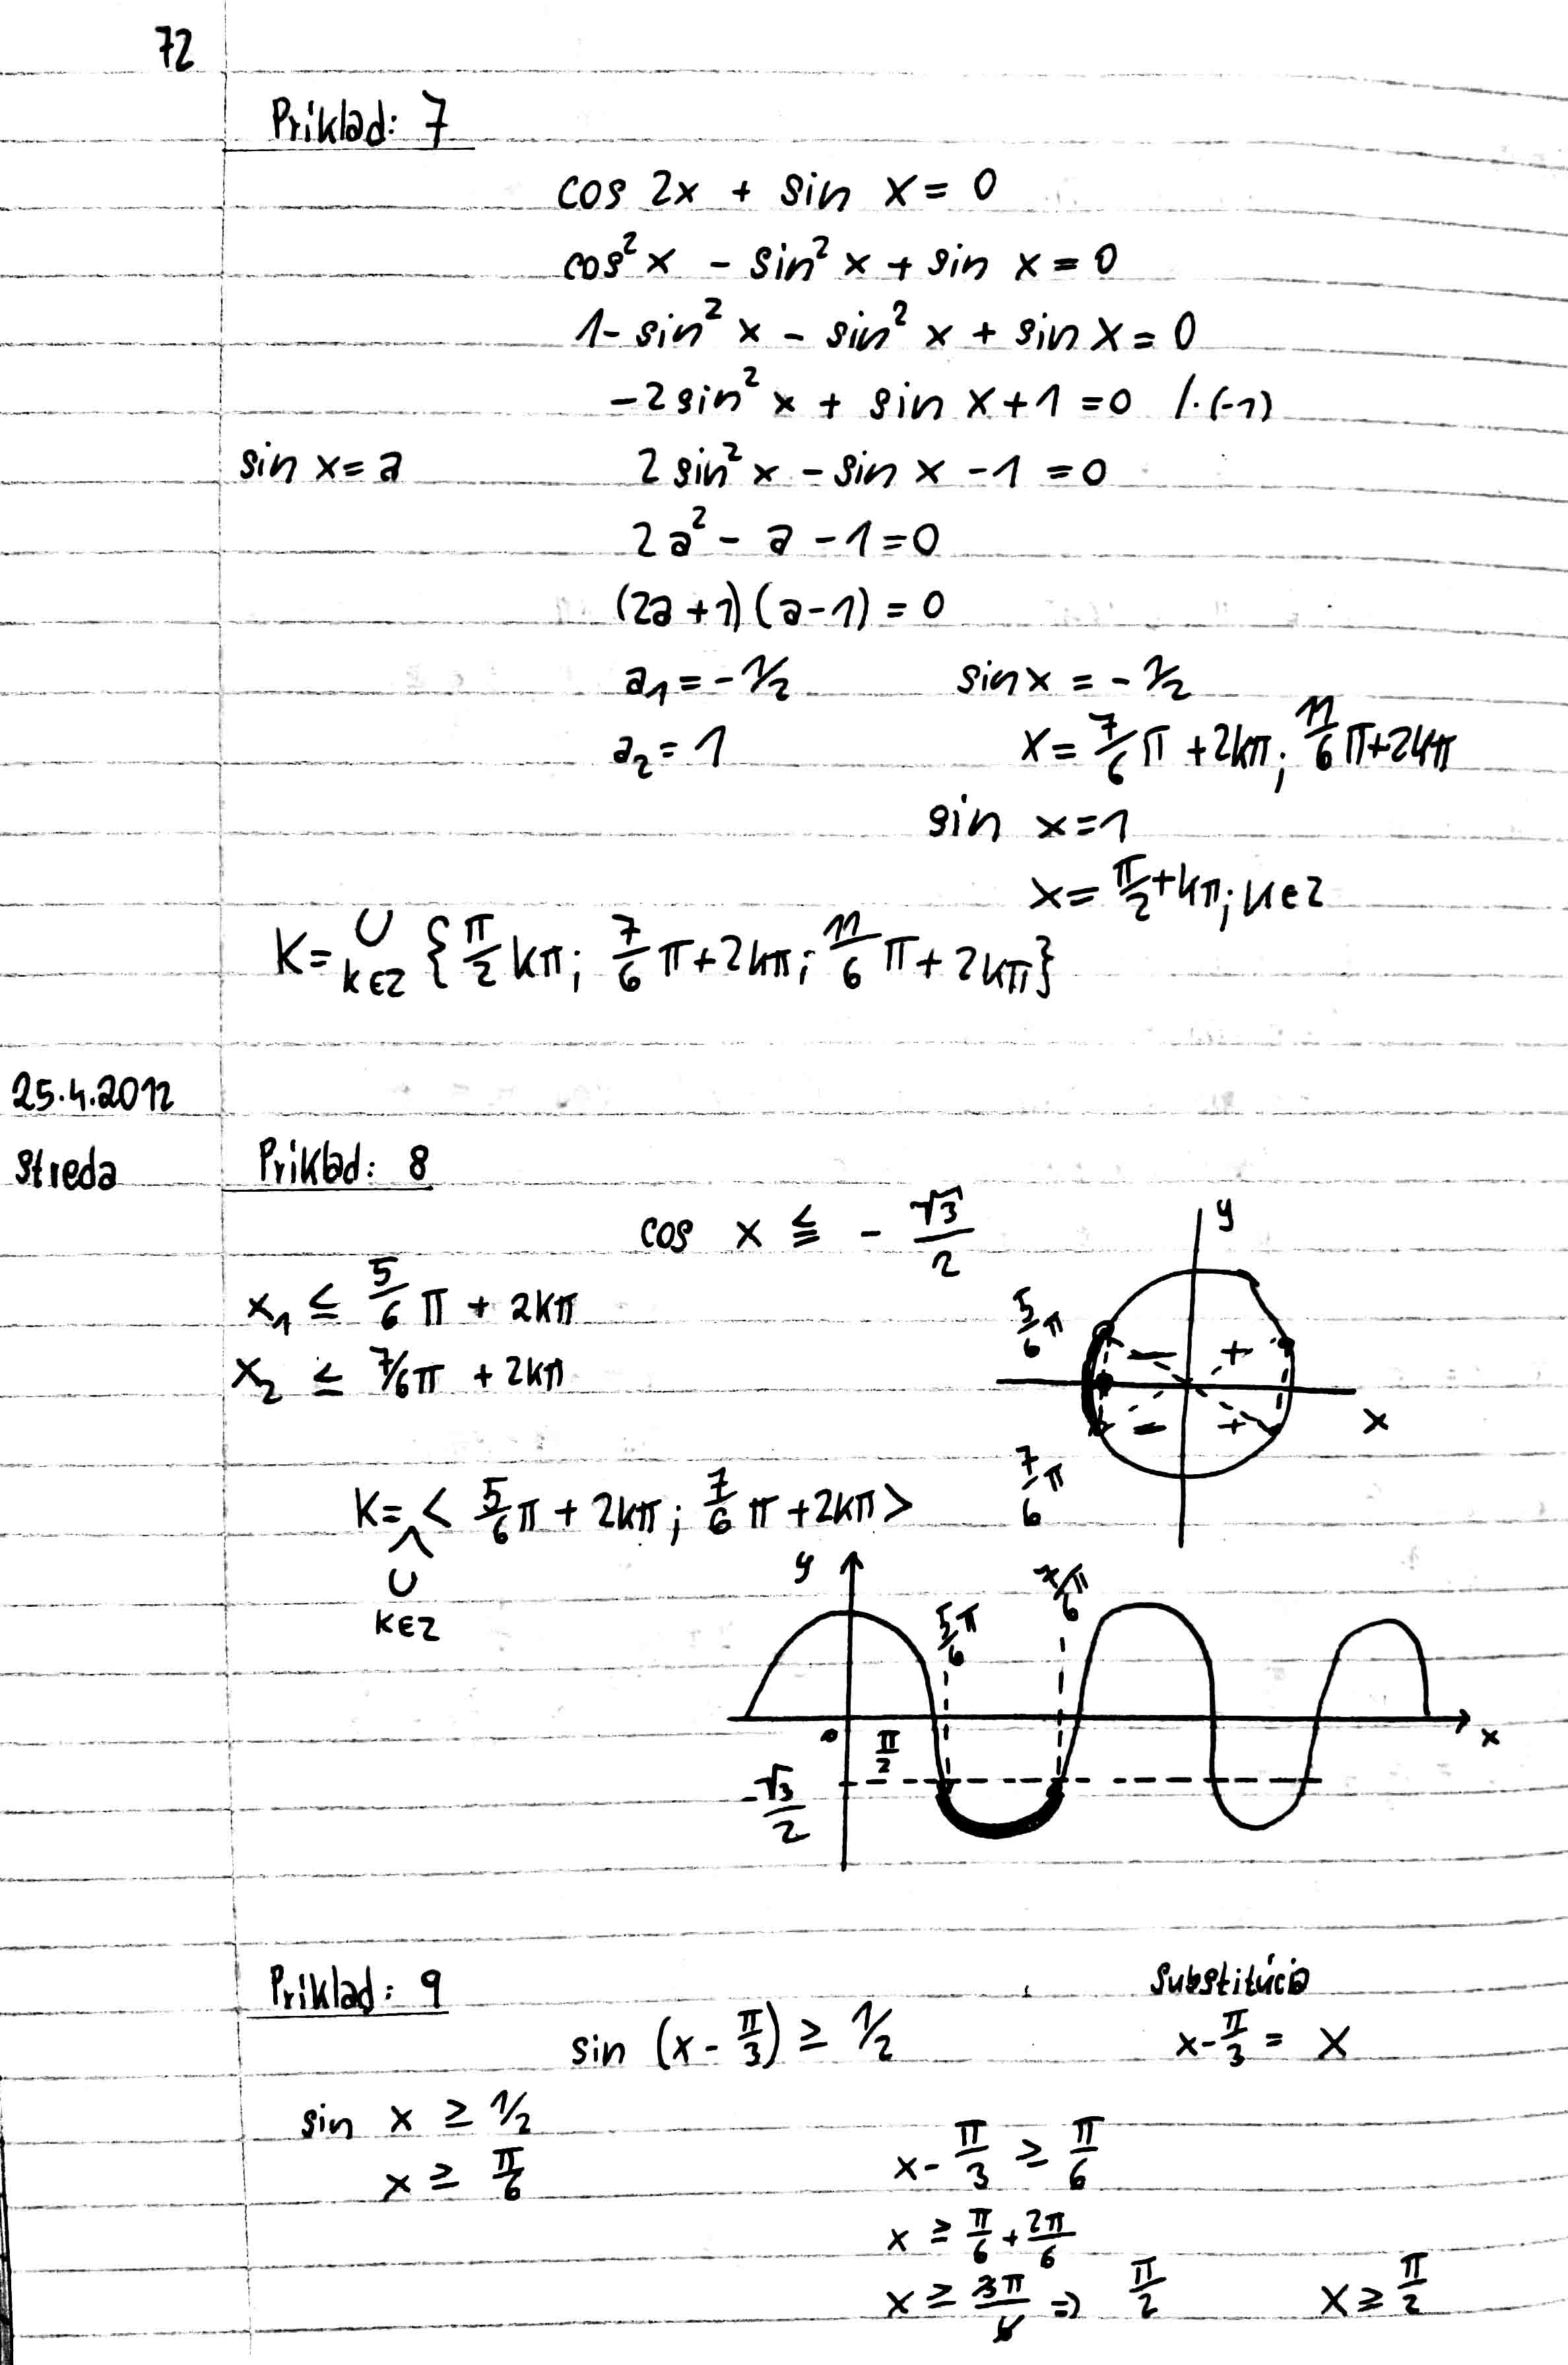 72
Príklad: 7
cos 2x + sin x = 0
cos² x - sin² x + sin x = 0
1 - sin² x - sin² x + sin x = 0
-2 sin² x + sin x + 1 = 0 /·(-1)
sin x = a 2 sin² x - sin x - 1 = 0
2a² - a - 1 = 0
(2a + 1)(a - 1) = 0
a₁ = -1/2 sin x = -1/2
a₂ = 1 x = 7/6 π + 2kπ; 11/6 π + 2kπ
sin x = 1
x = π/2 + kπ; k ∈ Z
K = ∪ k∈Z {π/2 kπ; 7/6 π + 2kπ; 11/6 π + 2kπ}
25.4.2012
streda Príklad: 8
cos x ≦ - √3/2
y
x₁ ≤ 5/6 π + 2kπ
5/6 π
- +
x₂ ≤ 7/6 π + 2kπ
- +
x
7/6 π
K = ∪ k∈Z < 5/6 π + 2kπ; 7/6 π + 2kπ >
y
5/6 π 7/6 π
0 π/2 x
-√3/2
Príklad: 9 Substitúcia
sin (x - π/3) ≥ 1/2 x - π/3 = X
sin x ≥ 1/2
x ≥ π/6 x - π/3 ≥ π/6
x ≥ π/6 + 2π/6
x ≥ 3π/6 => π/2 x ≥ π/2